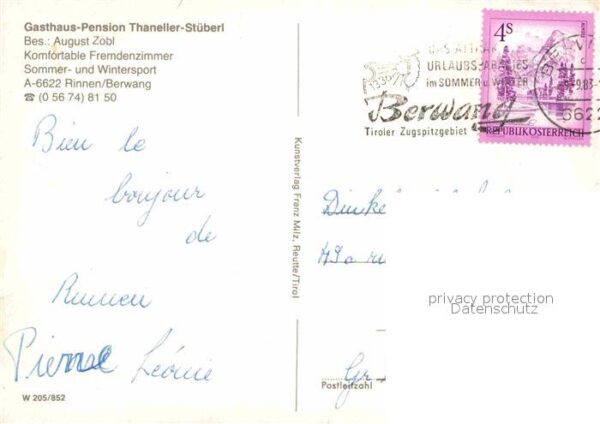 Gasthaus-Pension Thaneller-Stüberl
Bes.: August Zobl
Komfortable Fremdenzimmer
Sommer- und Wintersport
A-6622 Rinnen/Berwang
☎ (0 56 74) 81 50
Bien le
bonjour
de
Rinnen
Pierre Léonie
W 205/852
Kunstverlag Franz Milz, Reutte/Tirol
1336m
URLAUBS
im SOMMER u. WINTER
Berwang
Tiroler Zugspitzgebiet
4S
REPUBLIK ÖSTERREICH
6622
privacy protection
Datenschutz
Postleitzahl
Gr